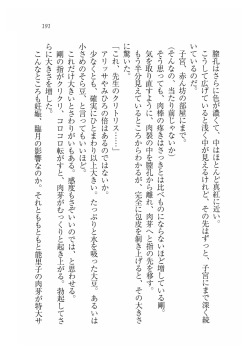 191
膣孔はさらに色が濃くて、中はほとんど真紅に近い。
こうして広げていると浅く中が見えるけれど、その先はずっと、子宮にまで深く続
いているのだ。
子宮、赤ん坊の部屋にまで。
(そんなの、当たり前じゃないか)
そう思っても、肉棒の疼きはさっきとは比べものにならないほど増している剛。
気を取り直すように、肉裂の中を膣孔から離れ、肉芽へと指の先を移す。
もう先端が見えているところからわかるが、完全に包皮を剥き上げると、その大きさ
に驚いた。
「これ、先生のクリトリス……」
アリッサやみひろの倍はあるのではないか。
少なくとも、確実にひとまわり以上大きい。たっぷりと水を吸った大豆。あるいは
小さめのそら豆、と言ってもいいくらいだ。
これだけ大きいとさわりがいもある。感度もさぞいいのでは、と思わせる。
剛の指がクリクリ、コロコロ転がすと、肉芽がむっくりと起き上がる。勃起してさ
らに大きさを増した。
こんなところも妊娠、臨月の影響なのか。それとももともと能里子の肉芽が特大サ